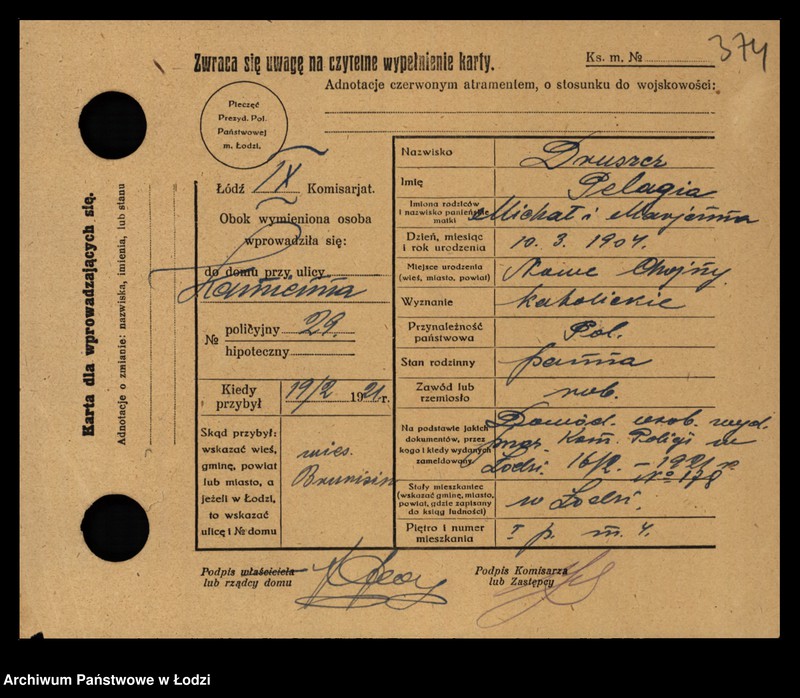 374
Zwraca się uwagę na czytelne wypełnienie karty.
Ks. m. №
Adnotacje czerwonym atramentem, o stosunku do wojskowości:
Pieczęć
Prezyd. Pol.
Państwowej
m. Łodzi.
Karta dla wprowadzających się.
Adnotacje o zmianie: nazwiska, imienia, lub stanu
Łódź IX Komisarjat.
Obok wymieniona osoba
wprowadziła się:
do domu przy ulicy
Kamienna
№ policyjny 29.
hipoteczny
Kiedy przybył 19/2 1921 r.
Skąd przybył:
wskazać wieś,
gminę, powiat
lub miasto, a
jeżeli w Łodzi,
to wskazać
ulicę i № domu
wieś.
Nazwisko Druszcz
Imię Pelagia
Imiona rodziców
i nazwisko panieńskie
matki
Michał i Marjanna
Dzień, miesiąc
i rok urodzenia
10. 3. 1904.
Miejsce urodzenia
(wieś, miasto, powiat)
Nowe Chojny
Wyznanie katolickie
Przynależność
państwowa
Pol.
Stan rodzinny panna
Zawód lub
rzemiosło
rob.
Na podstawie jakich
dokumentów, przez
kogo i kiedy wydanych
zameldowany
Dowód. osob. wyd.
przez Kom. Policji w
Łodzi. 16/2. – 1921 r.
№ 178
Stały mieszkaniec
(wskazać gminę, miasto,
powiat, gdzie zapisany
do ksiąg ludności)
w Łodzi.
Piętro i numer
mieszkania
I p. m. 4.
Podpis właściciela
lub rządcy domu
Podpis Komisarza
lub Zastępcy
Archiwum Państwowe w Łodzi